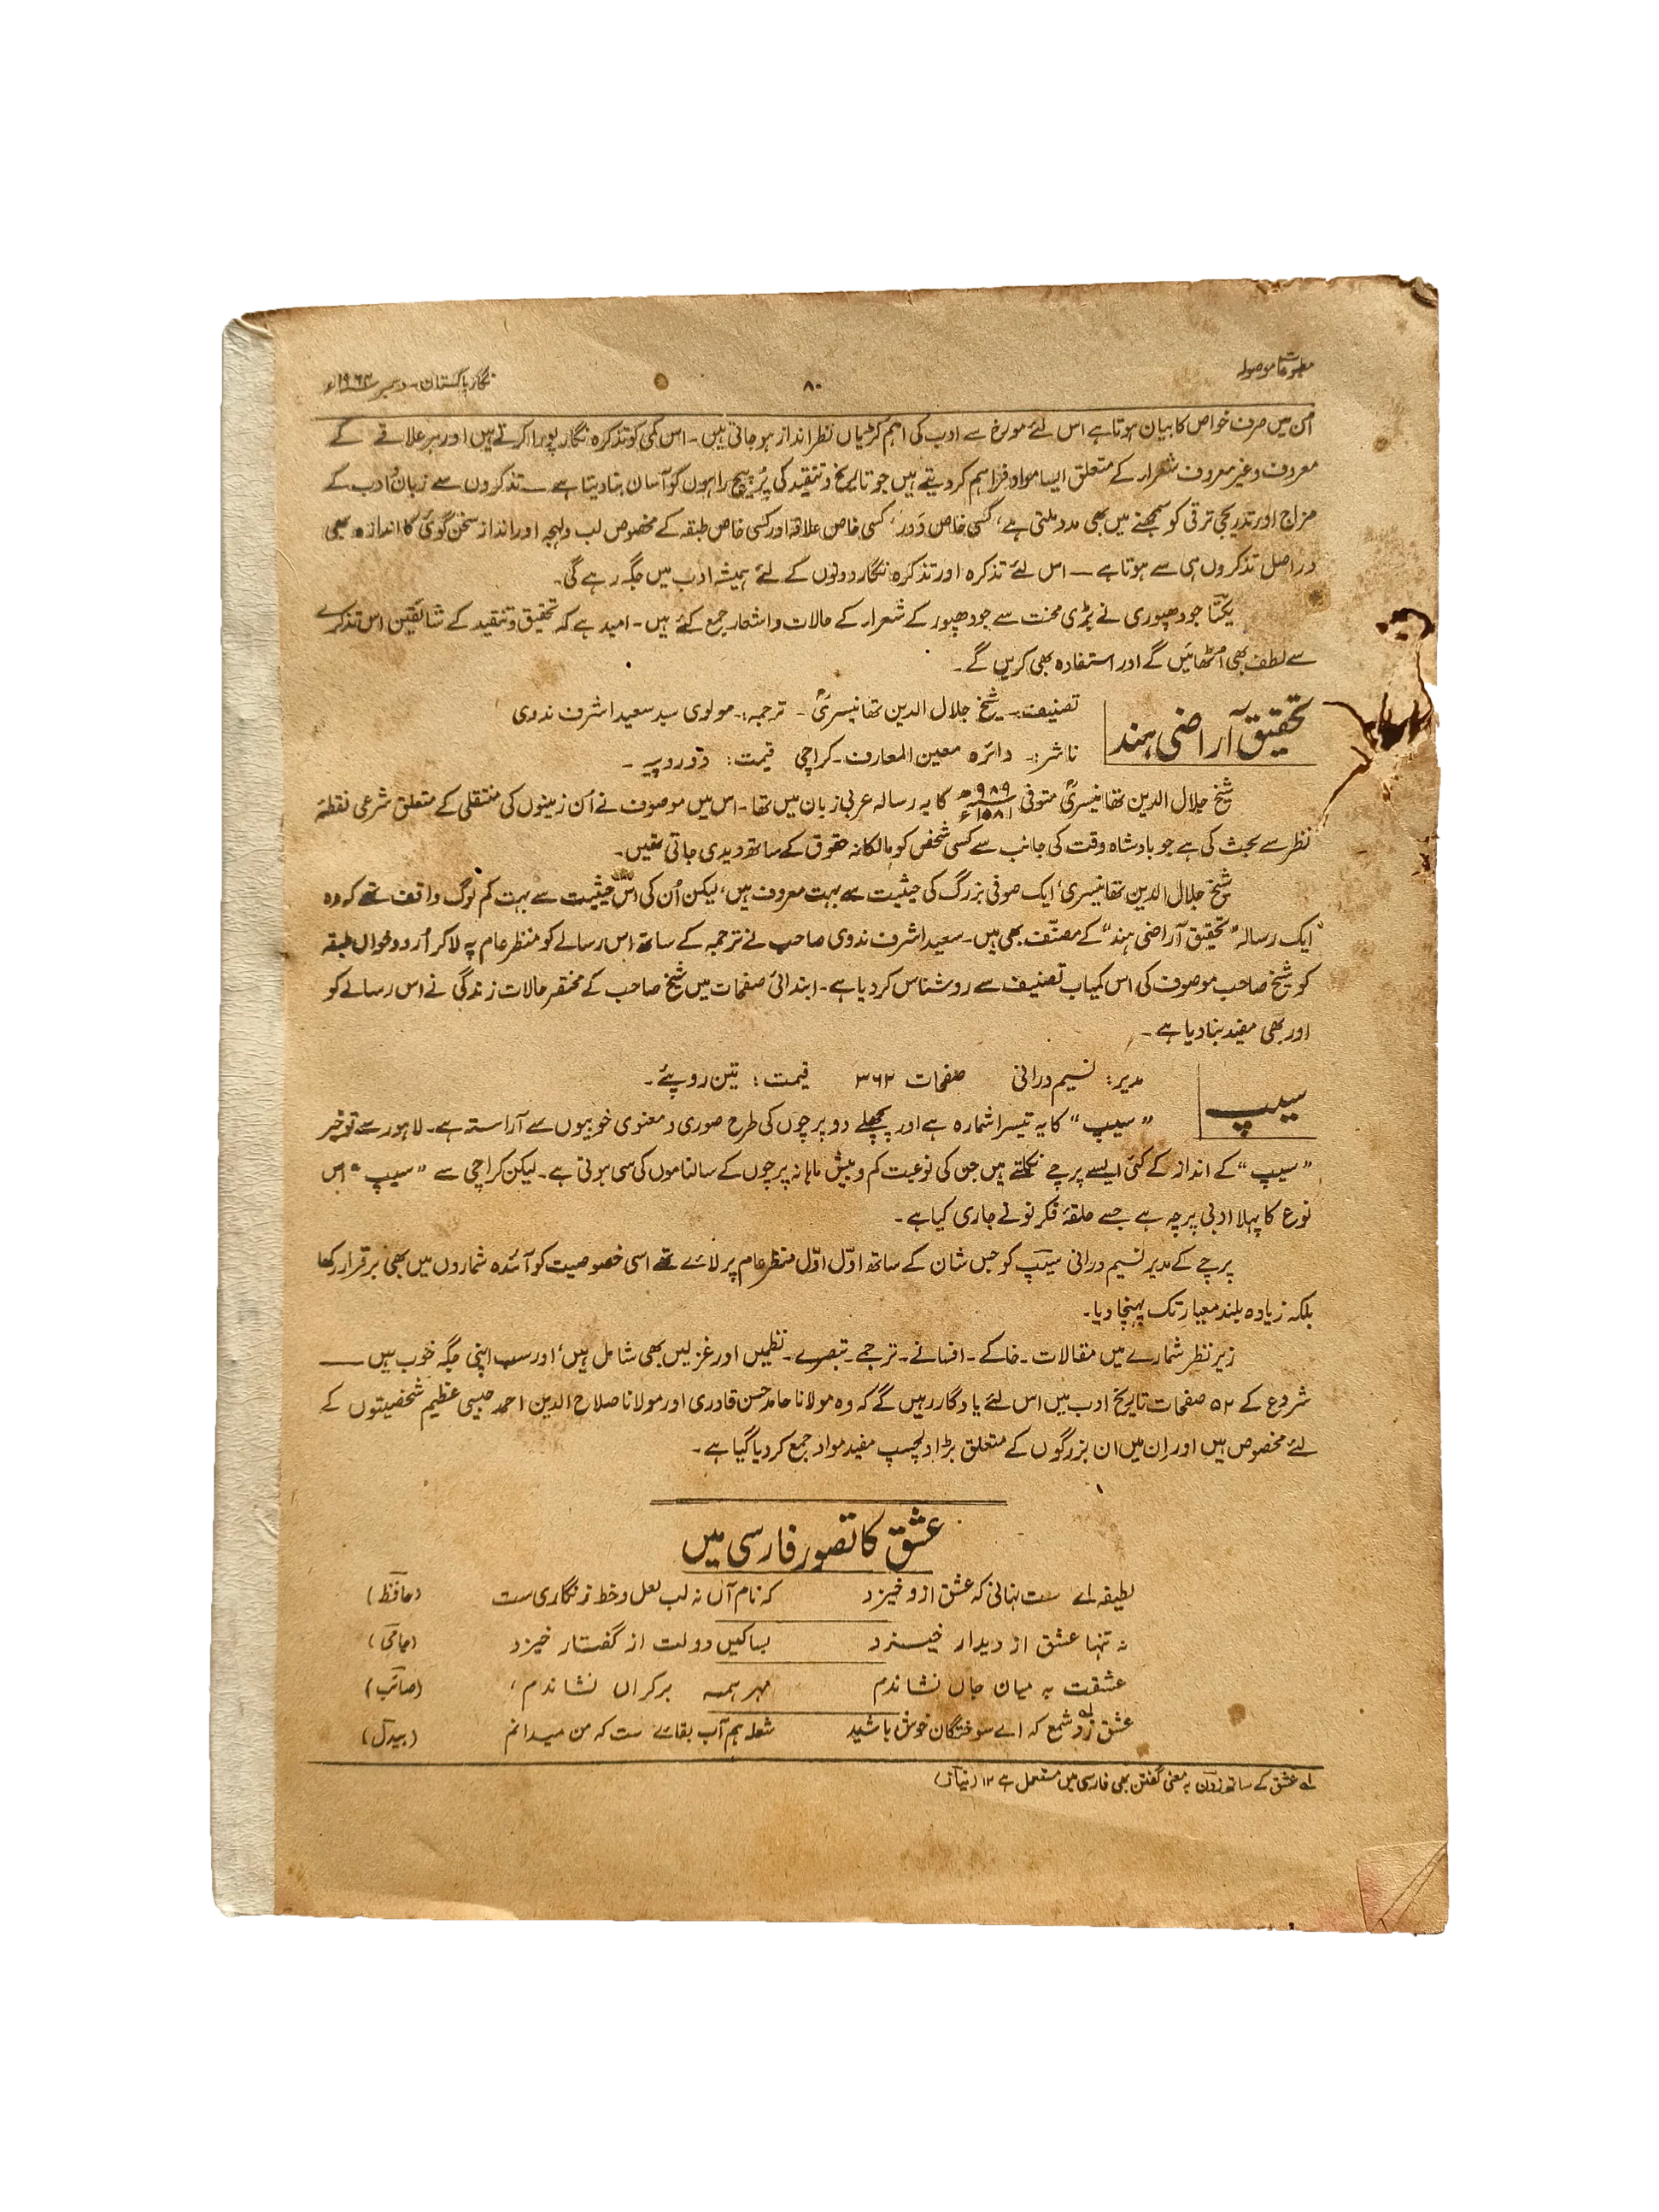 مطبوعات موصولہ
۸۰
نگار پاکستان۔ دسمبر ۱۹۶۴ء
اُن میں صرف خواص کا بیان ہوتا ہے اس لئے مورخ سے ادب کی اہم کڑیاں نظر انداز ہو جاتی ہیں۔ اس کمی کو تذکرہ نگار پورا کرتے ہیں اور ہر علاقے کے
معروف و غیر معروف شعراء کے متعلق ایسا مواد فراہم کر دیتے ہیں جو تاریخ و تنقید کی پُر پیچ راہوں کو آسان بنا دیتا ہے — تذکروں سے زبان و ادب کے
مزاج اور تدریجی ترقی کو سمجھنے میں بھی مدد ملتی ہے، کسی خاص دَور، کسی خاص علاقہ اور کسی خاص طبقہ کے مخصوص لب و لہجہ اور انداز سخن گوئی کا اندازہ بھی
در اصل تذکروں ہی سے ہوتا ہے — اس لئے تذکرہ اور تذکرہ نگار دونوں کے لئے ہمیشہ ادب میں جگہ رہے گی۔
یکتا جودھپوری نے بڑی محنت سے جودھپور کے شعراء کے حالات و اشعار جمع کئے ہیں۔ امید ہے کہ تحقیق و تنقید کے شائقین اس تذکرے
سے لطف بھی اُٹھائیں گے اور استفادہ بھی کریں گے۔
تحقیق آراضی ہند
تصنیف:۔ شیخ جلال الدین تھانیسریؒ ۔ ترجمہ:۔ مولوی سید سعید اشرف ندوی
ناشر:۔ دائرہ معین المعارف۔ کراچی قیمت: دو روپیہ ۔
شیخ جلال الدین تھانیسریؒ متوفی ۹۸۹ھ ۱۵۸۱ء کا یہ رسالہ عربی زبان میں تھا۔ اس میں موصوف نے اُن زمینوں کی منتقلی کے متعلق شرعی نقطۂ
نظر سے بحث کی ہے جو بادشاہ وقت کی جانب سے کسی شخص کو مالکانہ حقوق کے ساتھ دیدی جاتی تھیں۔
شیخ جلال الدین تھانیسریؒ ایک صوفی بزرگ کی حیثیت سے بہت معروف ہیں، لیکن اُن کی اس حیثیت سے بہت کم لوگ واقف تھے کہ وہ
ایک رسالہ "تحقیق آراضی ہند" کے مصنّف بھی ہیں۔ سعید اشرف ندوی صاحب نے ترجمہ کے ساتھ اس رسالے کو منظر عام پہ لا کر اُردو خواں طبقہ
کو شیخ صاحب موصوف کی اس کمیاب تصنیف سے روشناس کر دیا ہے۔ ابتدائی صفحات میں شیخ صاحب کے مختصر حالات زندگی نے اس رسالے کو
اور بھی مفید بنا دیا ہے ۔
سیپ
مدیر: نسیم درانی صفحات ۳۶۲ قیمت: تین روپئے۔
"سیپ" کا یہ تیسرا شمارہ ہے اور پچھلے دو پرچوں کی طرح صوری و معنوی خوبیوں سے آراستہ ہے۔ لاہور سے تو خیر
"سیپ" کے انداز کے کئی ایسے پرچے نکلتے ہیں جن کی نوعیت کم و بیش ماہانہ پرچوں کے سالناموں کی سی ہوتی ہے۔ لیکن کراچی سے "سیپ" اس
نوع کا پہلا ادبی پرچہ ہے جسے حلقۂ فکر نو نے جاری کیا ہے۔
پرچے کے مدیر نسیم درانی سیپ کو جس شان کے ساتھ اوّل اوّل منظر عام پر لائے تھے اسی خصوصیت کو آئندہ شماروں میں بھی برقرار رکھا
بلکہ زیادہ بلند معیار تک پہنچا دیا۔
زیر نظر شمارے میں مقالات۔ خاکے۔ افسانے۔ ترجمے۔ تبصرے۔ نظمیں اور غزلیں بھی شامل ہیں اور سب اپنی جگہ خوب ہیں —
شروع کے ۵۲ صفحات تاریخ ادب میں اس لئے یادگار رہیں گے کہ وہ مولانا حامد حسن قادری اور مولانا صلاح الدین احمد جیسی عظیم شخصیتوں کے
لئے مخصوص ہیں اور اِن میں ان بزرگوں کے متعلق بڑا دلچسپ مفید مواد جمع کر دیا گیا ہے۔
عشق کا تصور فارسی میں
لطیفہ اے ست نہانی کہ عشق ازو خیزد کہ نام آں نہ لب لعل و خط زنگاری ست (حافظ)
نہ تنہا عشق از دیدار خیزد بسا کیں دولت از گفتار خیزد (جامی)
عشقت بہ میان جاں نشاندم مہر ہمہ بر کراں نشاندم، (صائب)
عشق زد لہ شمع کہ اے سوختگان خوش باشید شعلہ ہم آب بقائے ست کہ من میدانم (بیدل)
لہ عشق کے ساتھ زدن بہ معنی گفتن بھی فارسی میں مستعمل ہے ۱۲ (نیاز)